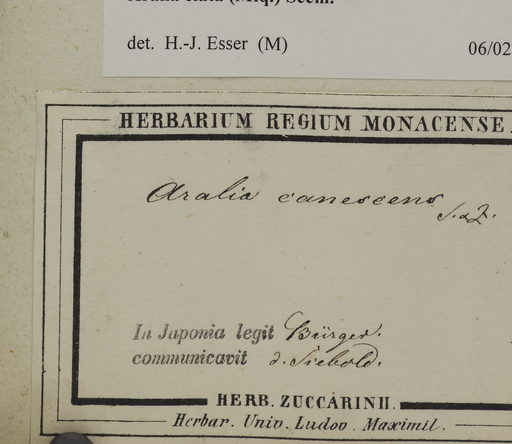 (Miq.) Seem.
det. H.-J. Esser (M) 06/02
HERBARIUM REGIUM MONACENSE
Aralia canescens
S. & Z.
In Japonia legit Bürger.
communicavit d. Siebold.
HERB. ZUCCARINII.
Herbar. Univ. Ludov. Maximil.